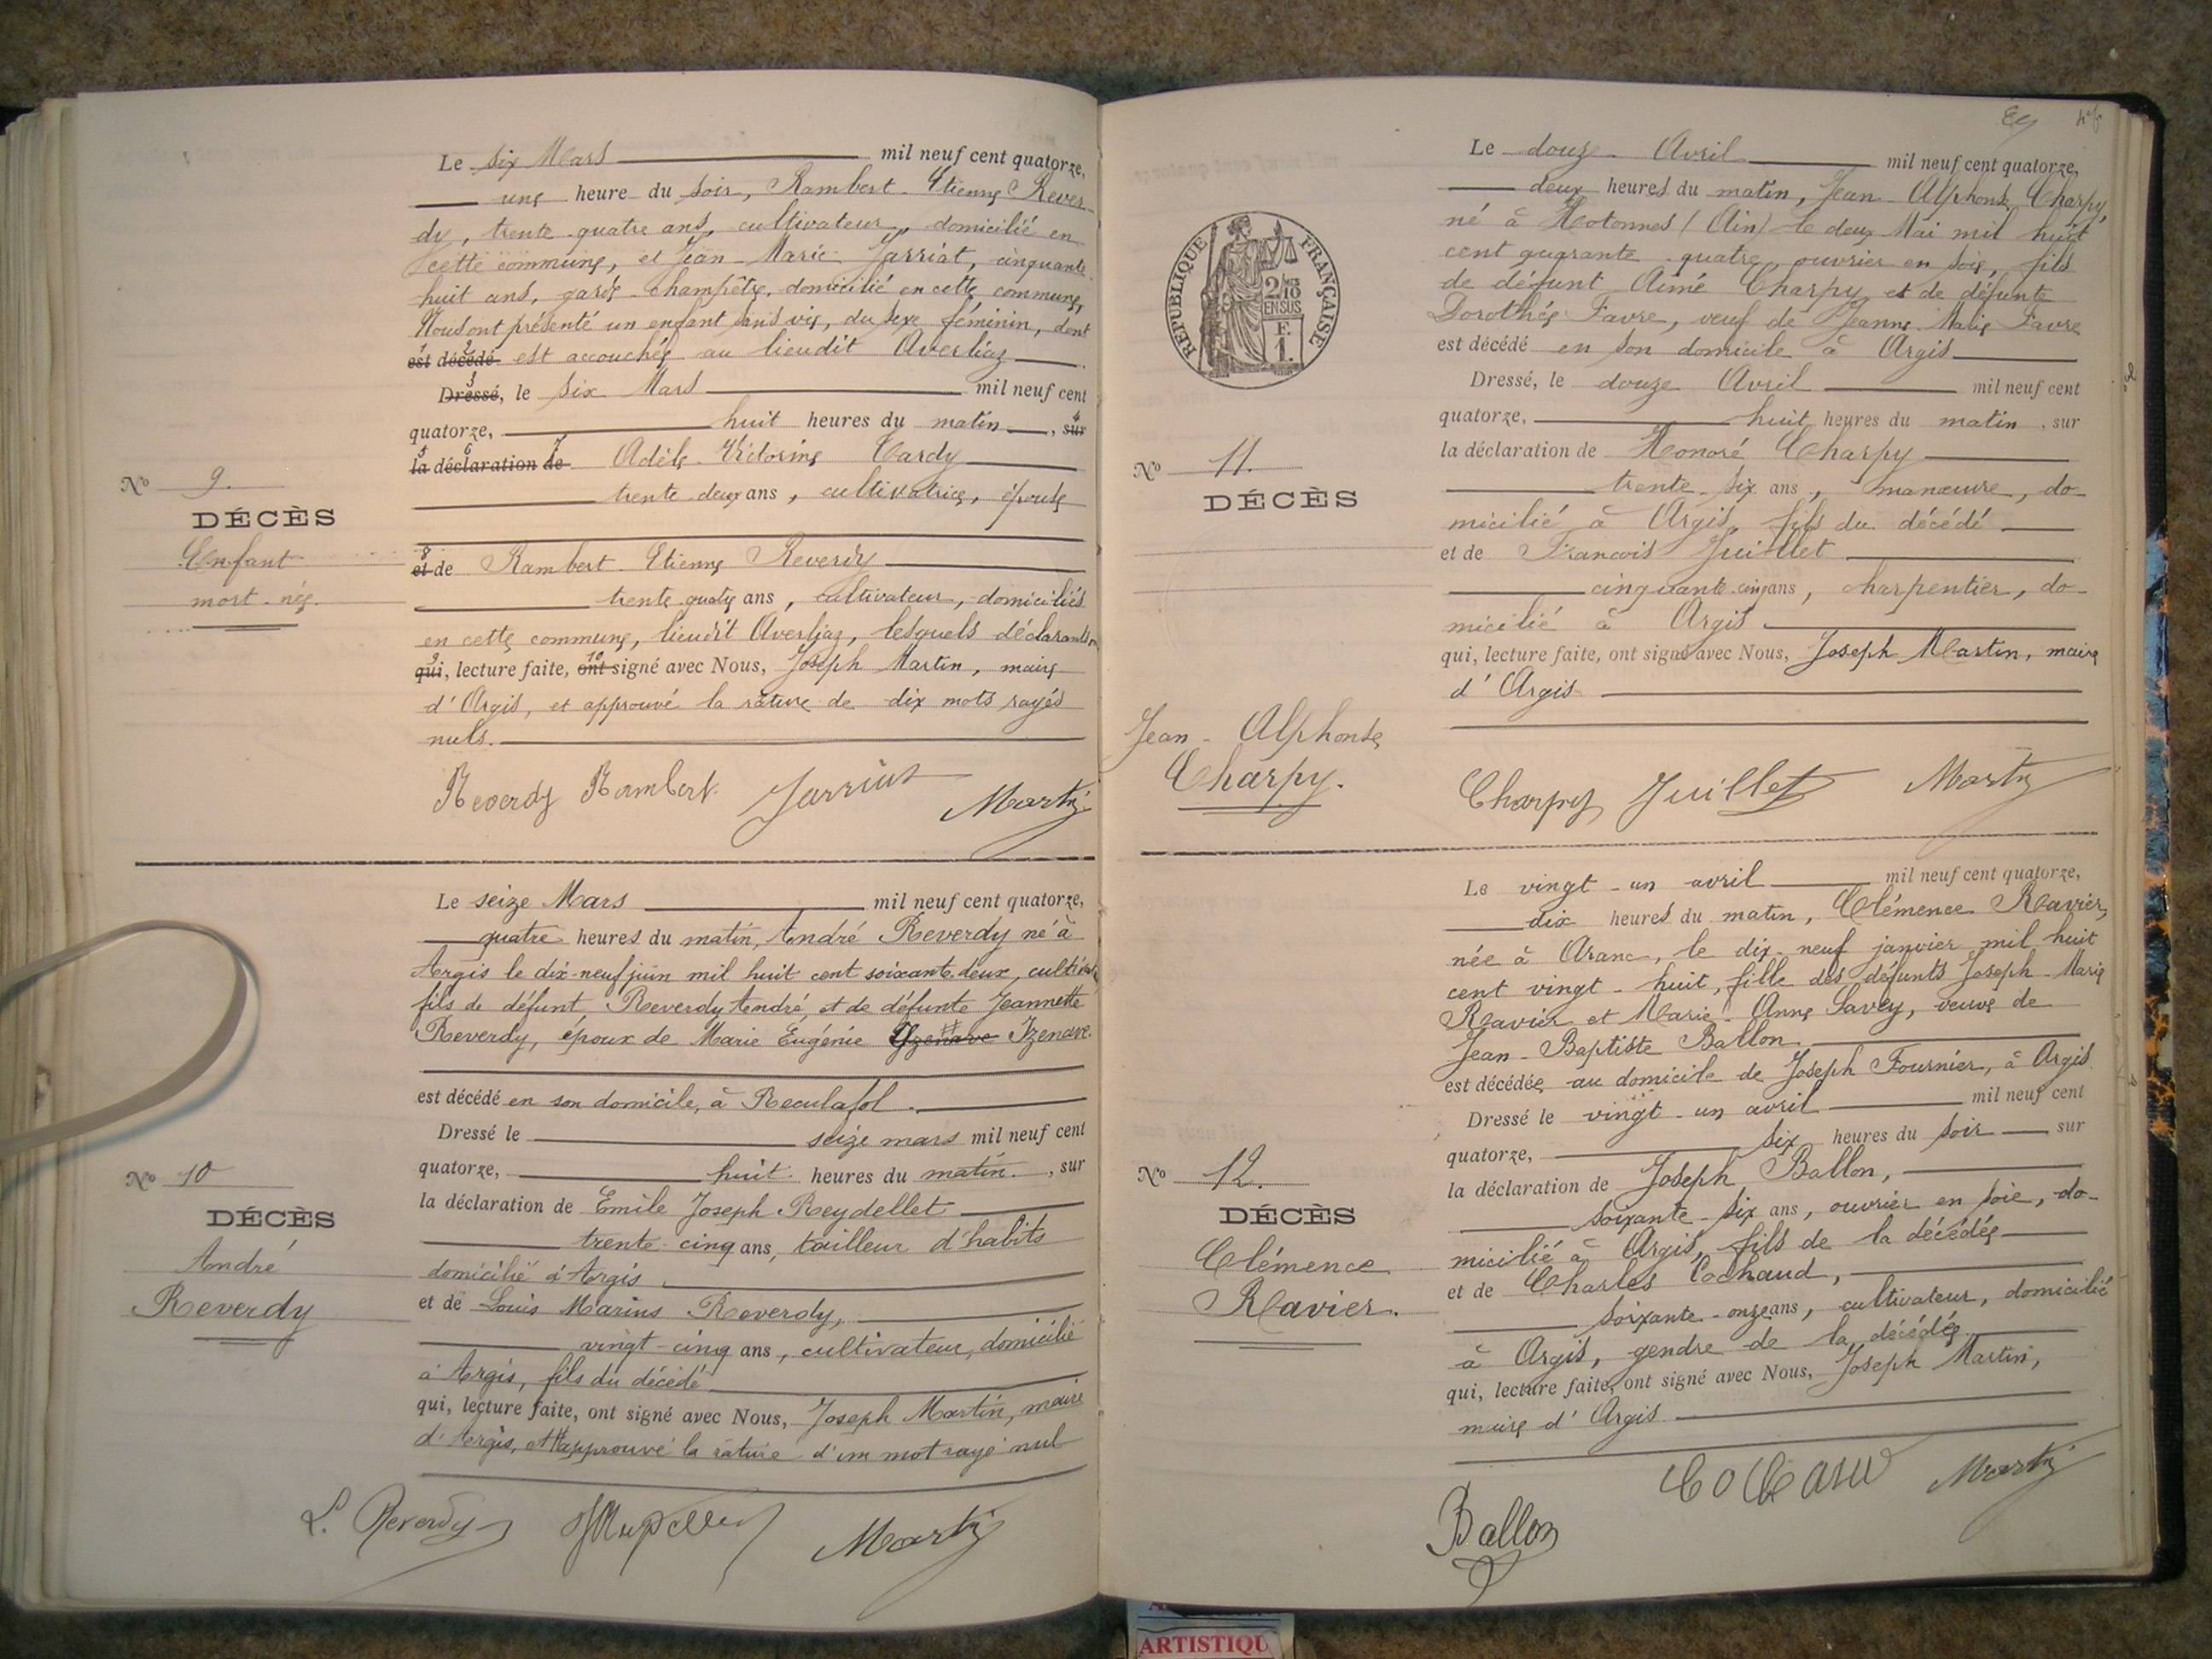 Le six Mars mil neuf cent quatorze,
une heure du soir, Rambert Etienne Rever-
dy, trente quatre ans, cultivateur, domicilié en
cette commune, et Jean-Marie Jarriat, cinquante
huit ans, garde-champêtre, domicilié en cette commune,
Nous ont présenté un enfant sans vie, du sexe féminin, dont
1 2
est décédé est accouchée au lieudit Averliaz
3
Dressé, le six Mars mil neuf cent
4
quatorze, huit heures du matin, sur
5 6 7
la déclaration de Adèle Victorine Cardy
trente deux ans, cultivatrice, épouse
8
et de Rambert Etienne Reverdy
trente quatre ans, cultivateur, domiciliés
en cette commune, lieudit Averliaz, lesquels déclarants
9 10
qui, lecture faite, ont signé avec Nous, Joseph Martin, maire
d'Argis, et approuvé la rature de dix mots rayés
nuls.
Reverdy Rambert Jarriat Martin
No 9.
DÉCÈS
Enfant
mort-née.
Le seize Mars mil neuf cent quatorze,
quatre heures du matin, André Reverdy né à
Argis le dix-neuf juin mil huit cent soixante-deux,
fils de défunt Reverdy André, et de défunte Jeannette
Reverdy, époux de Marie Eugénie Yzenave Izenave.
est décédé en son domicile, à Reculafol.
Dressé le seize mars mil neuf cent
quatorze, huit heures du matin, sur
la déclaration de Emile Joseph Reydellet
trente-cinq ans, tailleur d'habits
domicilié à Argis
et de Louis Marius Reverdy,
vingt-cinq ans, cultivateur, domicilié
à Argis, fils du décédé
qui, lecture faite, ont signé avec Nous, Joseph Martin, maire
d'Argis, et approuvé la rature d'un mot rayé nul
L. Reverdy Martin
No 10
DÉCÈS
André
Reverdy
Le douze Avril mil neuf cent quatorze,
deux heures du matin, Jean-Alphonse Charpy,
né à Hotonnes (Ain) le deux Mai mil huit
cent quarante-quatre, ouvrier en soie, fils
de défunt Aimé Charpy et de défunte
Dorothée Favre, veuf de Jeanne Favre
est décédé en son domicile à Argis
Dressé, le douze Avril mil neuf cent
quatorze, huit heures du matin, sur
la déclaration de Honoré Charpy
trente-six ans, manœuvre, do-
micilié à Argis, fils du décédé
et de Francois Juillet
cinquante-cinq ans, charpentier, do-
micilié à Argis
qui, lecture faite, ont signé avec Nous, Joseph Martin, maire
d'Argis
Charpy Juillet Martin
RÉPUBLIQUE FRANÇAISE
2/10
EN SUS
F.
1.
No 11.
DÉCÈS
Jean-Alphonse
Charpy.
Le vingt-un avril mil neuf cent quatorze,
dix heures du matin, Clémence Ravier,
née à Aranc, le dix-neuf janvier mil huit
cent vingt-huit, fille des défunts Joseph-Marie
Ravier et Marie-Anne Savey, veuve de
Jean-Baptiste Ballon
est décédée au domicile de Joseph Fournier, à Argis.
Dressé le vingt-un avril mil neuf cent
quatorze, six heures du soir sur
la déclaration de Joseph Ballon,
soixante-six ans, ouvrier en soie, do-
micilié à Argis, fils de la décédée
et de Charles Cochaud,
soixante-onze ans, cultivateur, domicilié
à Argis, gendre de la décédée
qui, lecture faite, ont signé avec Nous, Joseph Martin,
maire d'Argis
Ballon Martin
No 12.
DÉCÈS
Clémence
Ravier.
ARTISTIQU